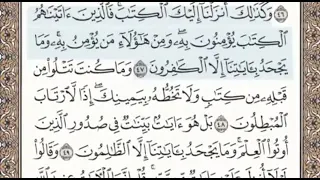 ﴿٤٦﴾ وَكَذَٰلِكَ أَنزَلْنَا إِلَيْكَ الْكِتَابَ فَالَّذِينَ آتَيْنَاهُمُ
الْكِتَابَ يُؤْمِنُونَ بِهِ وَمِنْ هَٰؤُلَاءِ مَن يُؤْمِنُ بِهِ وَمَا
يَجْحَدُ بِآيَاتِنَا إِلَّا الْكَافِرُونَ ﴿٤٧﴾ وَمَا كُنتَ تَتْلُو مِن
قَبْلِهِ مِن كِتَابٍ وَلَا تَخُطُّهُ بِيَمِينِكَ إِذًا لَّارْتَابَ
الْمُبْطِلُونَ ﴿٤٨﴾ بَلْ هُوَ آيَاتٌ بَيِّنَاتٌ فِي صُدُورِ الَّذِينَ
أُوتُوا الْعِلْمَ وَمَا يَجْحَدُ بِآيَاتِنَا إِلَّا الظَّالِمُونَ ﴿٤٩﴾ وَقَالُوا